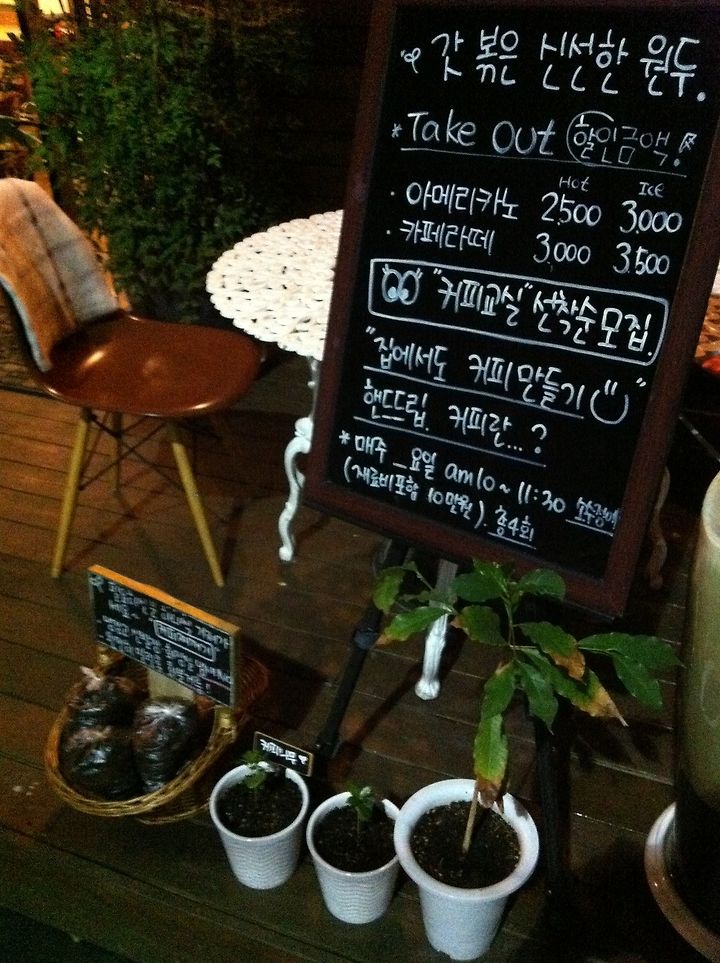 갓 볶은 신선한 원두.
*Take out 할인금액!
Hot Ice
· 아메리카노 2,500 3,000
· 카페라떼 3,000 3,500
"커피교실" 선착순 모집.
"집에서도 커피 만들기"
핸드드립. 커피란...?
* 매주 _요일 am10~11:30 소수정예
(재료비포함 10만원). 총4회
커피나무